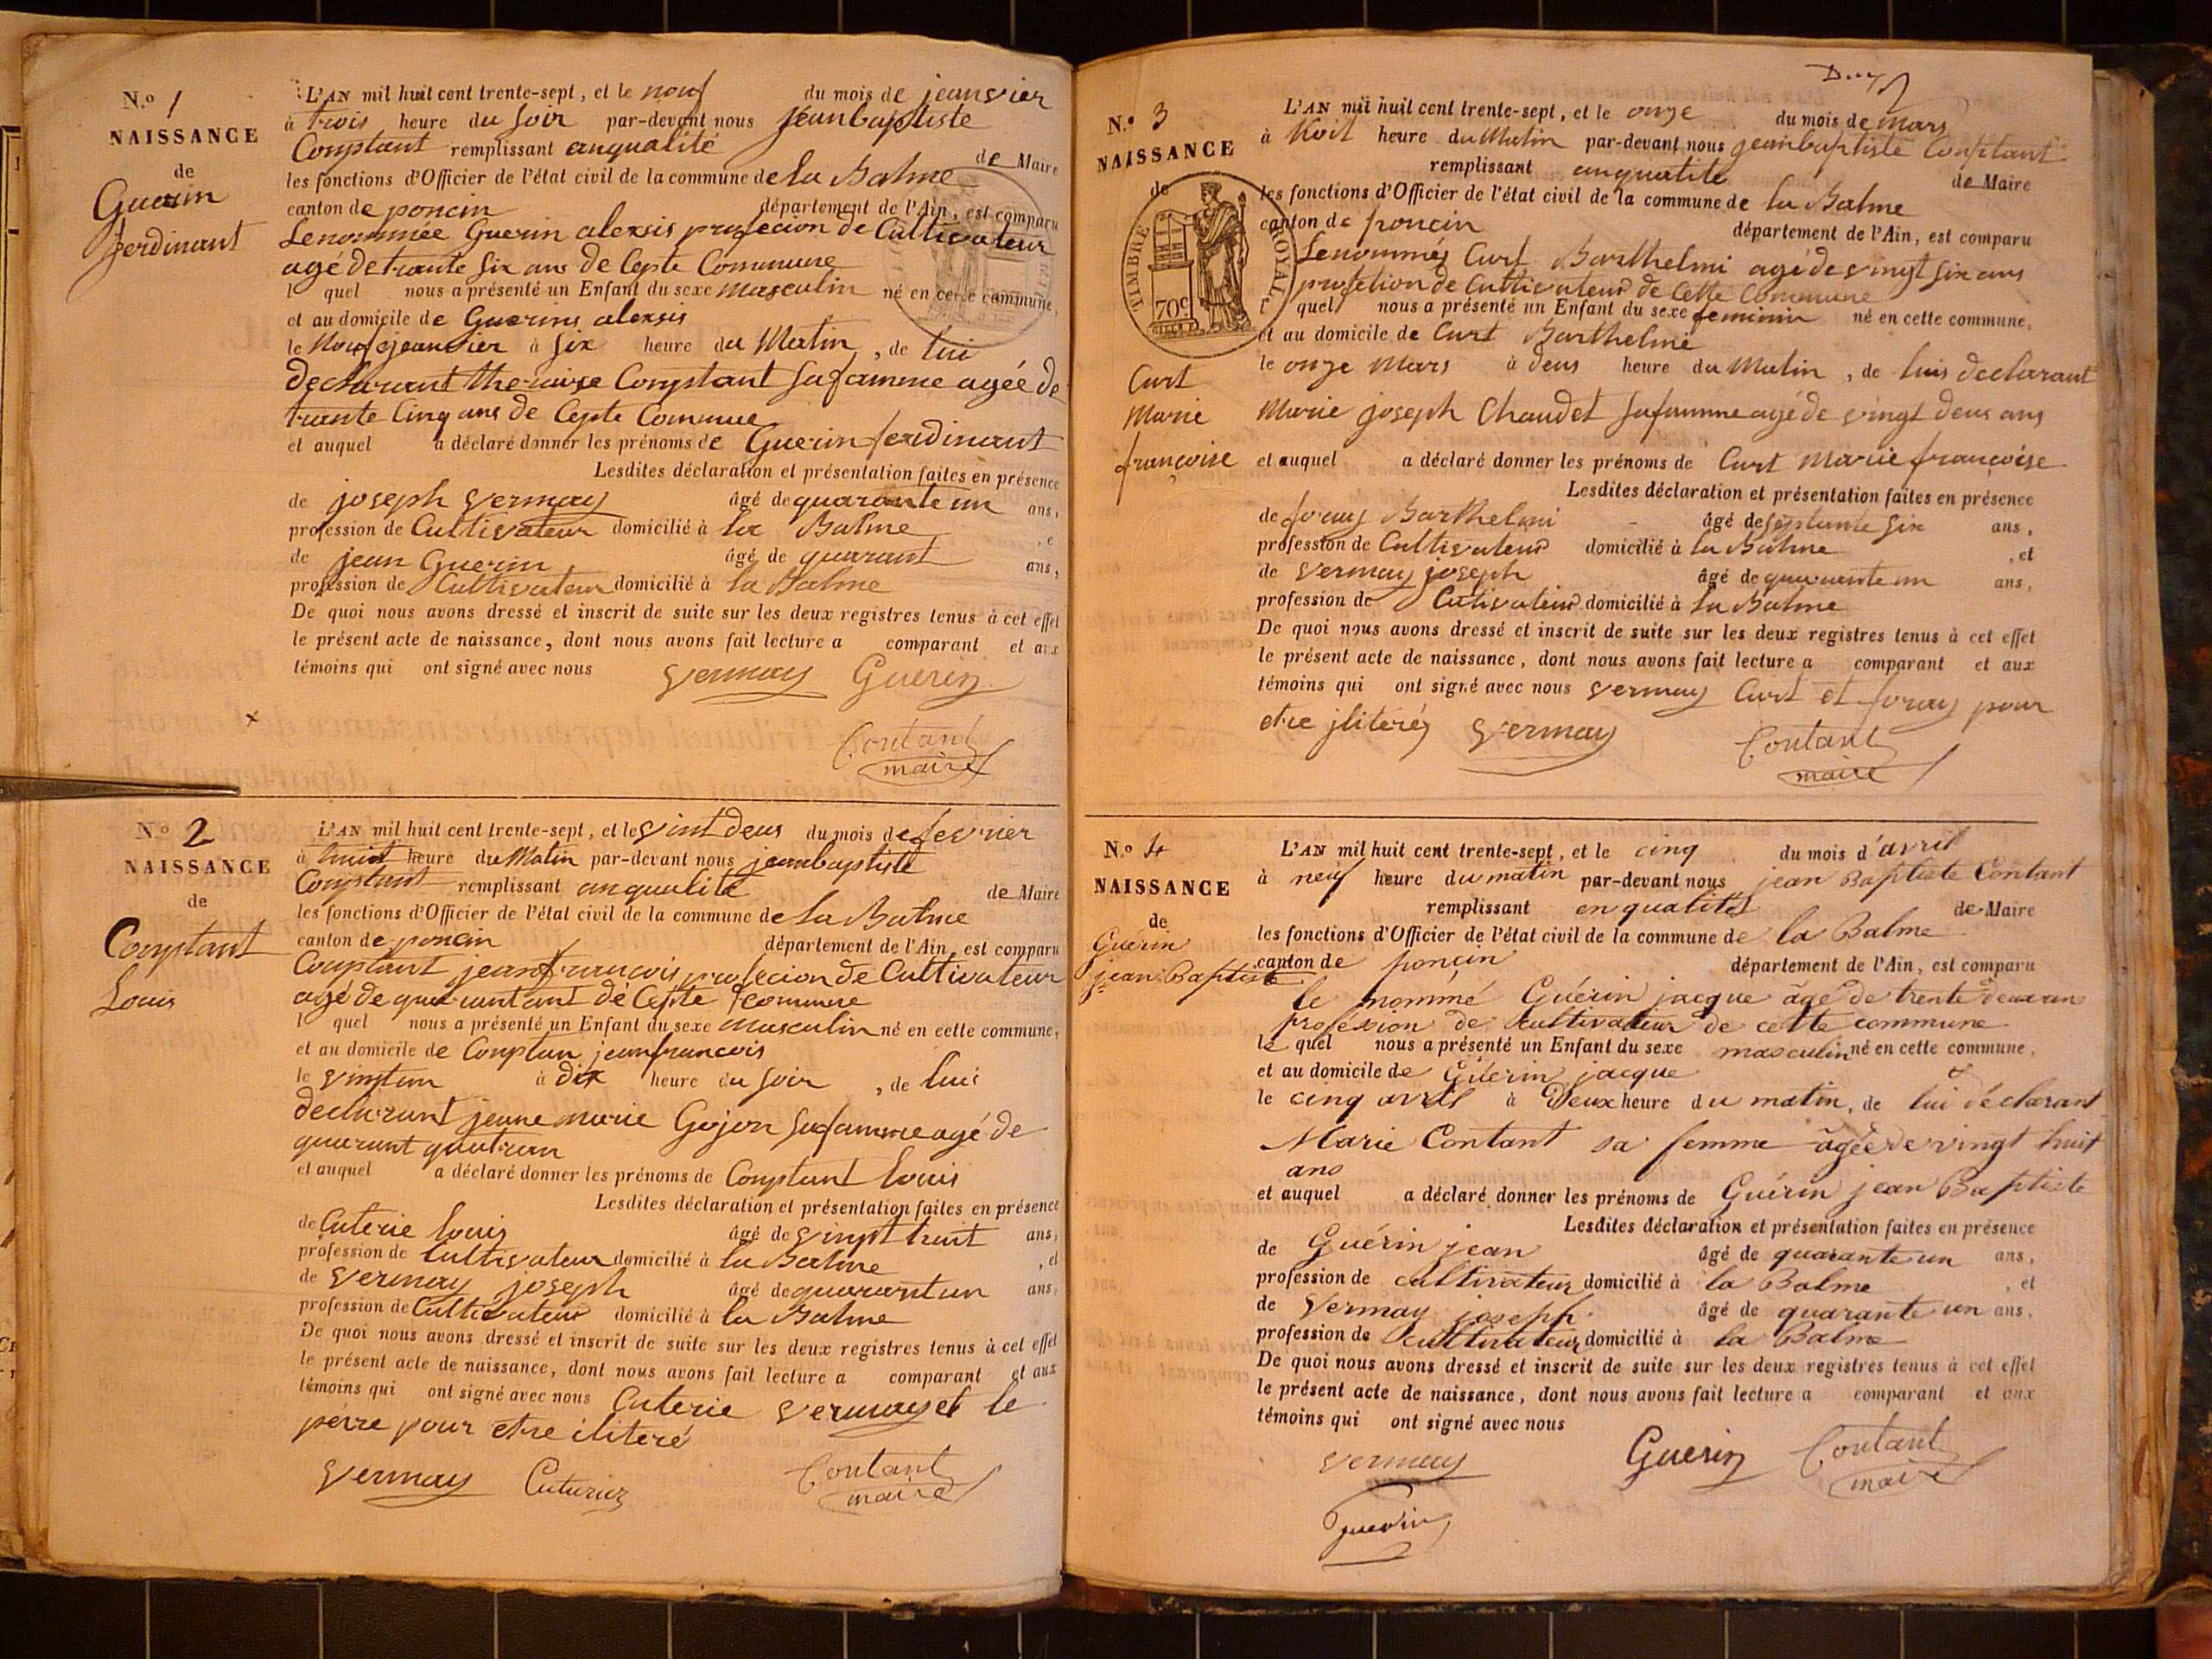 N.o 1
NAISSANCE
de
Guerin
ferdinant
L'AN mil huit cent trente-sept, et le nouf du mois de jeanvier
à trois heure du soir par-devant nous jeanbaptiste
Conptant remplissant anqualité de Maire
les fonctions d'Officier de l'état civil de la commune de la Balme
canton de poncin département de l'Ain, est comparu
Lenommée Guerin alexsis profecion de Cultivateur
agé de trante six ans de Cepte Commune
l quel nous a présenté un Enfant du sexe masculin né en cette commune,
et au domicile de Guerins alexsis
le nouf jeanvier à six heure du Matin, de lui
declarant Conptant sa famme agée de
trante Cinq ans de Cepte Commue
et auquel a déclaré donner les prénoms de Guerin ferdinant
Lesdites déclaration et présentation faites en présence
de joseph Vermay âgé de quarante un ans,
profession de Cultivateur domicilié à la Balme, e
de jean Guerin âgé de quarant ans,
profession de Cultivateur domicilié à la Balme
De quoi nous avons dressé et inscrit de suite sur les deux registres tenus à cet effet
le présent acte de naissance, dont nous avons fait lecture a comparant et aux
témoins qui ont signé avec nous Vermay Guerin
Contant
maire
N.o 2
NAISSANCE
de
Conptant
Louis
L'AN mil huit cent trente-sept, et le vint deus du mois de fevrier
à huit heure du Matin par-devant nous jeanbaptiste
Conptant remplissant anqualité de Maire
les fonctions d'Officier de l'état civil de la commune de la Balme
canton de poncin département de l'Ain, est comparu
Conptant jeanfrancois profecion de Cultivateur
agé de quarantant dé Cepte Commune
l quel nous a présenté un Enfant du sexe masculin né en cette commune,
et au domicile de Conptan jeanfrancois
le vingtun à dix heure du soir, de lui
declarant jeane marie Gojon sa famme agé de
quarant quatran
et auquel a déclaré donner les prénoms de Conptant louis
Lesdites déclaration et présentation faites en présence
de Cuterie louis âgé de vingt huit ans,
profession de Cultivateur domicilié à la Balme, et
de Vermay joseph âgé de quarantun ans,
profession de Cultivateur domicilié à la Balme
De quoi nous avons dressé et inscrit de suite sur les deux registres tenus à cet effet
le présent acte de naissance, dont nous avons fait lecture a comparant et aux
témoins qui ont signé avec nous Cuterie Vermay et le
perre pour etre iliteré
Vermay Cuturier Contant
maire
N.o 3
NAISSANCE
de
TIMBRE ROYAL
70c
Curt
Marie
françoise
L'AN mil huit cent trente-sept, et le onze du mois de mars
à huit heure du Matin par-devant nous jeanbaptiste Conptant
remplissant anqualite de Maire
les fonctions d'Officier de l'état civil de la commune de la Balme
canton de poncin département de l'Ain, est comparu
Lenommés Curt Barthelmi agé de vingt six ans
profetion de Cultivateur de Cette Commune
l quel nous a présenté un Enfant du sexe feminin né en cette commune,
et au domicile de Curt Barthelmi
le onze Mars à deus heure du Matin, de luis declarant
Marie joseph Chaudet sa famme agé de vingt deus ans
et auquel a déclaré donner les prénoms de Curt Marie françoise
Lesdites déclaration et présentation faites en présence
de foray Barthelmi âgé de septante six ans,
profession de Cultivateur domicilié à la Balme, et
de Vermay joseph âgé de quarante un ans,
profession de Cutivateur domicilié à la Balme
De quoi nous avons dressé et inscrit de suite sur les deux registres tenus à cet effet
le présent acte de naissance, dont nous avons fait lecture a comparant et aux
témoins qui ont signé avec nous Vermay Curt et foray pour
etre jliteréz Vermay Contant
maire
N.o 4
NAISSANCE
de
Guérin
jean Baptiste
L'AN mil huit cent trente-sept, et le cinq du mois d'avril
à neuf heure du matin par-devant nous jean Baptiste Contant
remplissant en qualité de Maire
les fonctions d'Officier de l'état civil de la commune de la Balme
canton de poncin département de l'Ain, est comparu
le nommé Guérin jacque âgé de trente deux an
profession de cultivateur de cette commune
le quel nous a présenté un Enfant du sexe masculin né en cette commune,
et au domicile de Guérin jacque
le cinq avril à Deux heure du matin, de lui déclarant
Marie Contant sa femme âgée de vingt huit
ans
et auquel a déclaré donner les prénoms de Guérin jean Baptiste
Lesdites déclaration et présentation faites en présence
de Guérin jean âgé de quarante un ans,
profession de cultivateur domicilié à la Balme, et
de Vermay joseph âgé de quarante un ans,
profession de cultivateur domicilié à la Balme
De quoi nous avons dressé et inscrit de suite sur les deux registres tenus à cet effet
le présent acte de naissance, dont nous avons fait lecture a comparant et aux
témoins qui ont signé avec nous
Vermay Guerin Contant
maire
Guerin